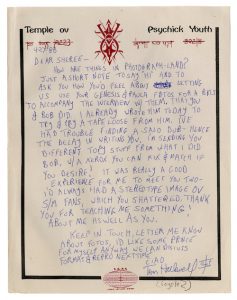 Temple ov Psychick Youth
DEAR SHEREE-
HOW ARE THINGS IN PHOTOGRAPH-LAND?
JUST A SHORT NOTE TO SAY HI! AND TO
ASK YOU HOW YOU'D FEEL ABOUT LETTING
US USE YOUR GENESIS & PAULA FOTOS FOR A
TO ACCOMPANY THE INTERVIEW W/ THEM, THAT YOU
& BOB DID. I ALREADY WROTE HIM TODAY TO
TRY & PRY A TAPE LOOSE FROM HIM. I'VE
HAD TROUBLE FINDING A DUB- HENCE
THE DELAY IN WRITING YOU. I'M SENDING YOU
DIFFERENT TOPY STUFF FROM WHAT I DID
BOB. W/ A XEROX YOU CAN MIX & MATCH IF
YOU DESIRE! IT WAS REALLY A GOOD
EXPERIENCE FOR ME TO MEET YOU TWO-
I'D ALWAYS HAD A STEREOTYPE IMAGE OV
S/M FANS, WHICH YOU SHATTERED. THANK
YOU FOR TEACHING ME SOMETHING!
ABOUT ME AS WELL AS YOU.
KEEP IN TOUCH, LET ME KNOW
ABOUT FOTOS, I'D LIKE SOME
FOR MYSELF ANYWAY. WE CAN DISCUSS
FORMAT & REPRO NEXT TIME.
CIAO
Tom